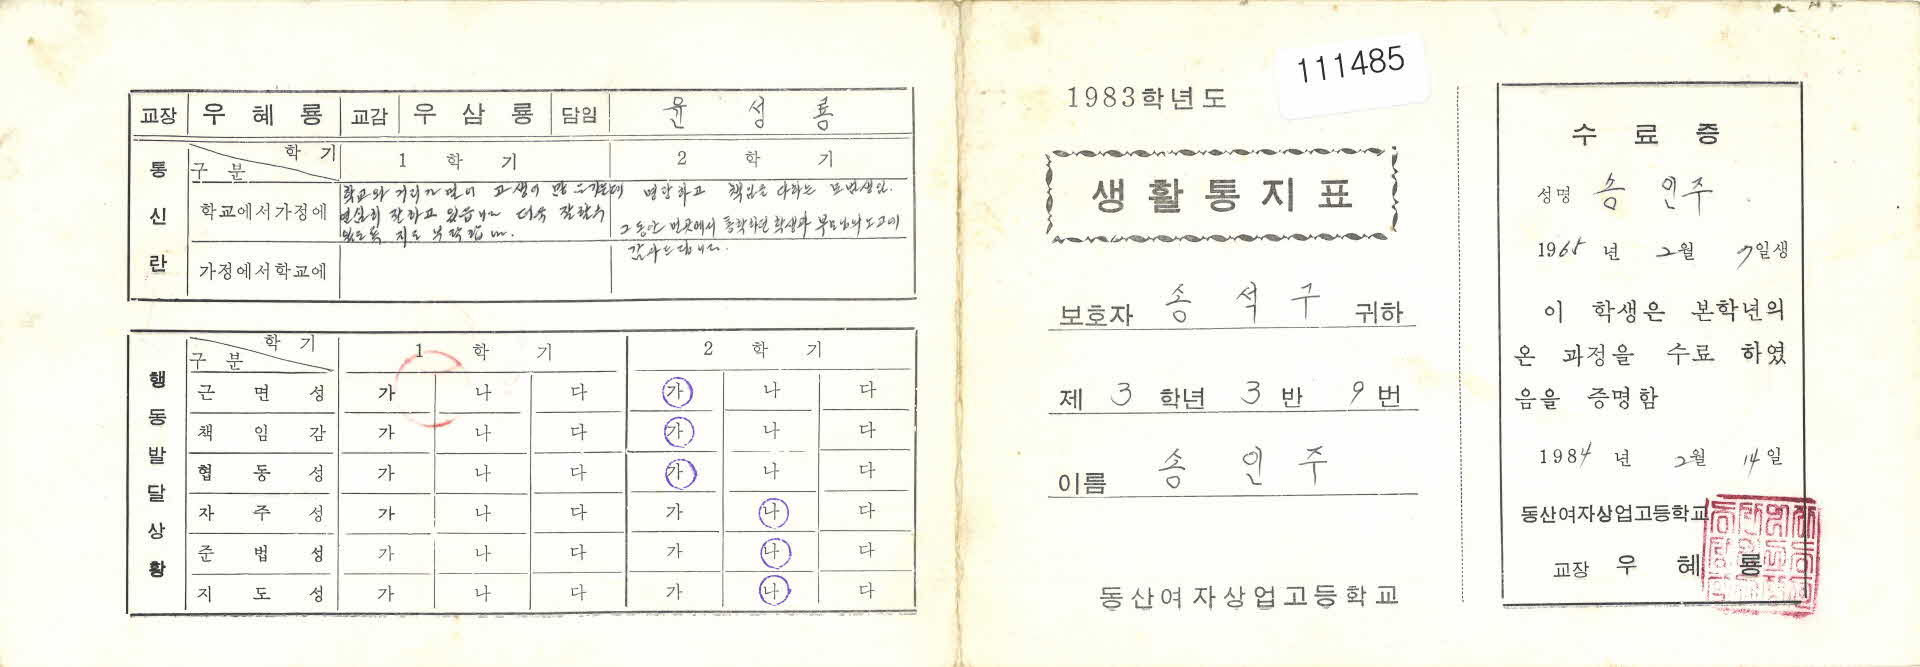 교장 우 혜 룡 교감 우 삼 룡 담임 윤 성 룡
통신란
학 기
구 분
1 학 기
2 학 기
학교에서가정에
학교와 거리가 멀어 고생이 많은가운데
열심히 잘하고 있습니다 더욱 잘할수
있도록 지도 부탁합니다.
명랑하고 책임을 다하는 모범생임.
그동안 먼곳에서 통학하던 학생과 부모님의 노고에
감사드립니다.
가정에서학교에
행동발달상황
학 기
구 분
1 학 기
2 학 기
근 면 성 가 나 다 가 나 다
책 임 감 가 나 다 가 나 다
협 동 성 가 나 다 가 나 다
자 주 성 가 나 다 가 나 다
준 법 성 가 나 다 가 나 다
지 도 성 가 나 다 가 나 다
111485
1983학년도
생활통지표
보호자 송 석 구 귀하
제 3 학년 3 반 9 번
이름 송 인 주
동산여자상업고등학교
수 료 증
성명 송 인주
1965 년 2월 7일생
이 학생은 본학년의
온 과정을 수료 하였
음을 증명함
1984 년 2월 14일
동산여자상업고등학교
교장 우 혜 룡